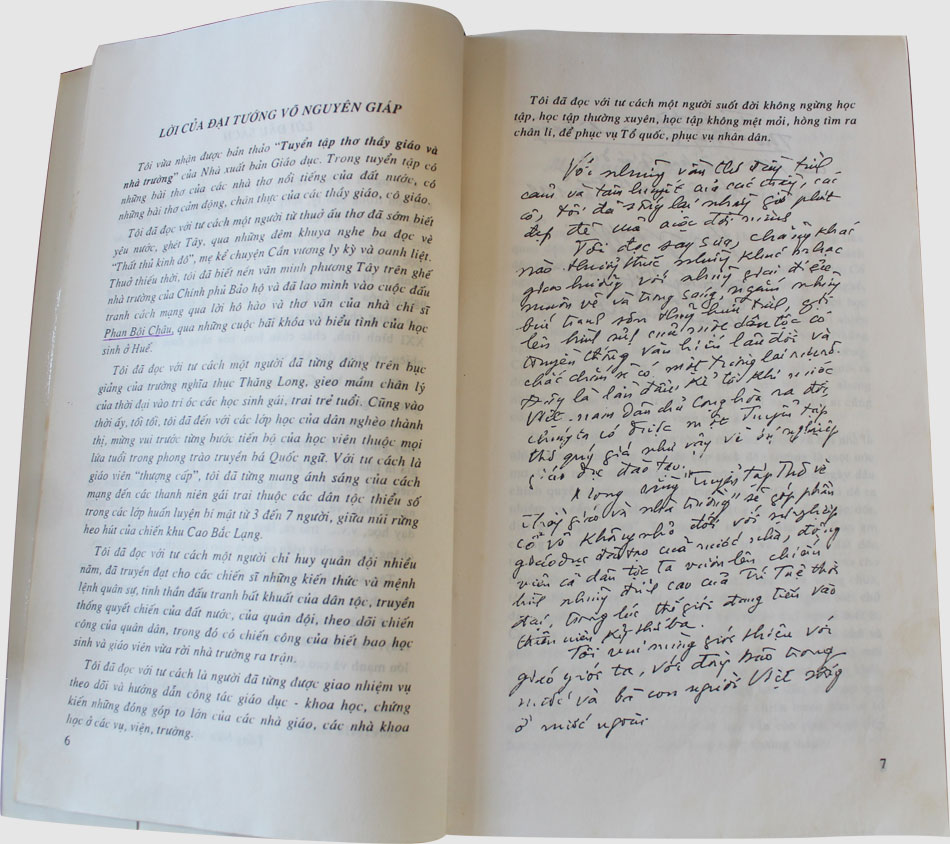 LỜI CỦA ĐẠI TƯỚNG VÕ NGUYÊN GIÁP
Tôi vừa nhận được bản thảo "Tuyển tập thơ thầy giáo và
nhà trường" của Nhà xuất bản Giáo dục. Trong tuyển tập có
những bài thơ của các nhà thơ nổi tiếng của đất nước, có
những bài thơ cảm động, chân thực của các thầy giáo, cô giáo.
Tôi đã đọc với tư cách một người từ thuở ấu thơ đã sớm biết
yêu nước, ghét Tây, qua những đêm khuya nghe ba đọc vè
"Thất thủ kinh đô", mẹ kể chuyện Cần vương ly kỳ và oanh liệt.
Thuở thiếu thời, tôi đã biết nền văn minh phương Tây trên ghế
nhà trường của Chính phủ Bảo hộ và đã lao mình vào cuộc đấu
tranh cách mạng qua lời hô hào và thơ văn của nhà chí sĩ
Phan Bội Châu, qua những cuộc bãi khóa và biểu tình của học
sinh ở Huế.
Tôi đã đọc với tư cách một người đã từng đứng trên bục
giảng của trường nghĩa thục Thăng Long, gieo mầm chân lý
của thời đại vào trí óc các học sinh gái, trai trẻ tuổi. Cũng vào
thời ấy, tối tối, tôi đã đến với các lớp học của dân nghèo thành
thị, mừng vui trước từng bước tiến bộ của học viên thuộc mọi
lứa tuổi trong phong trào truyền bá Quốc ngữ. Với tư cách là
giáo viên "thượng cấp", tôi đã từng mang ánh sáng của cách
mạng đến các thanh niên gái trai thuộc các dân tộc thiểu số
trong các lớp huấn luyện bí mật từ 3 đến 7 người, giữa núi rừng
heo hút của chiến khu Cao Bắc Lạng.
Tôi đã đọc với tư cách một người chỉ huy quân đội nhiều
năm, đã truyền đạt cho các chiến sĩ những kiến thức và mệnh
lệnh quân sự, tinh thần đấu tranh bất khuất của dân tộc, truyền
thống quyết chiến của đất nước, của quân đội, theo dõi chiến
công của quân dân, trong đó có chiến công của biết bao học
sinh và giáo viên vừa rời nhà trường ra trận.
Tôi đã đọc với tư cách là người đã từng được giao nhiệm vụ
theo dõi và hướng dẫn công tác giáo dục - khoa học, chứng
kiến những đóng góp to lớn của các nhà giáo, các nhà khoa
học ở các vụ, viện, trường.
6
Tôi đã đọc với tư cách một người suốt đời không ngừng học
tập, học tập thường xuyên, học tập không mệt mỏi, hòng tìm ra
chân lí, để phục vụ Tổ quốc, phục vụ nhân dân.
Với những vần thơ đầy tình
cảm và tâm huyết của các thầy, các
cô, tôi đã sống lại những giờ phút
đẹp đẽ của cuộc đời mình
Tôi đọc say sưa, chẳng khác
nào thưởng thức những khúc nhạc
giao hưởng với những giai điệu
muôn vẻ và trong sáng, ngắm những
bức tranh sơn thủy hữu tình, gợi
lên hình ảnh của một dân tộc có
truyền thống văn hiến lâu đời và
chắc chắn sẽ có một tương lai
Đây là lần đầu, kể từ khi nước
Việt-nam Dân chủ Cộng hòa ra đời,
chúng ta có được một Tuyển tập
thơ quý giá như vậy về sự nghiệp
giáo dục đào tạo.
Mong rằng "Tuyển tập Thơ về
Thầy giáo và nhà trường" sẽ góp phần
cổ vũ không nhỏ đối với sự nghiệp
giáo dục đào tạo của nước nhà, động
viên cả dân tộc ta vươn lên chiếm
lĩnh những đỉnh cao của Trí Tuệ thời
đại, trong lúc thế giới đang tiến vào
thiên niên kỷ thứ ba.
Tôi vui mừng giới thiệu với
giáo giới ta, với đồng bào trong
nước và bà con người Việt sống
ở nước ngoài
7